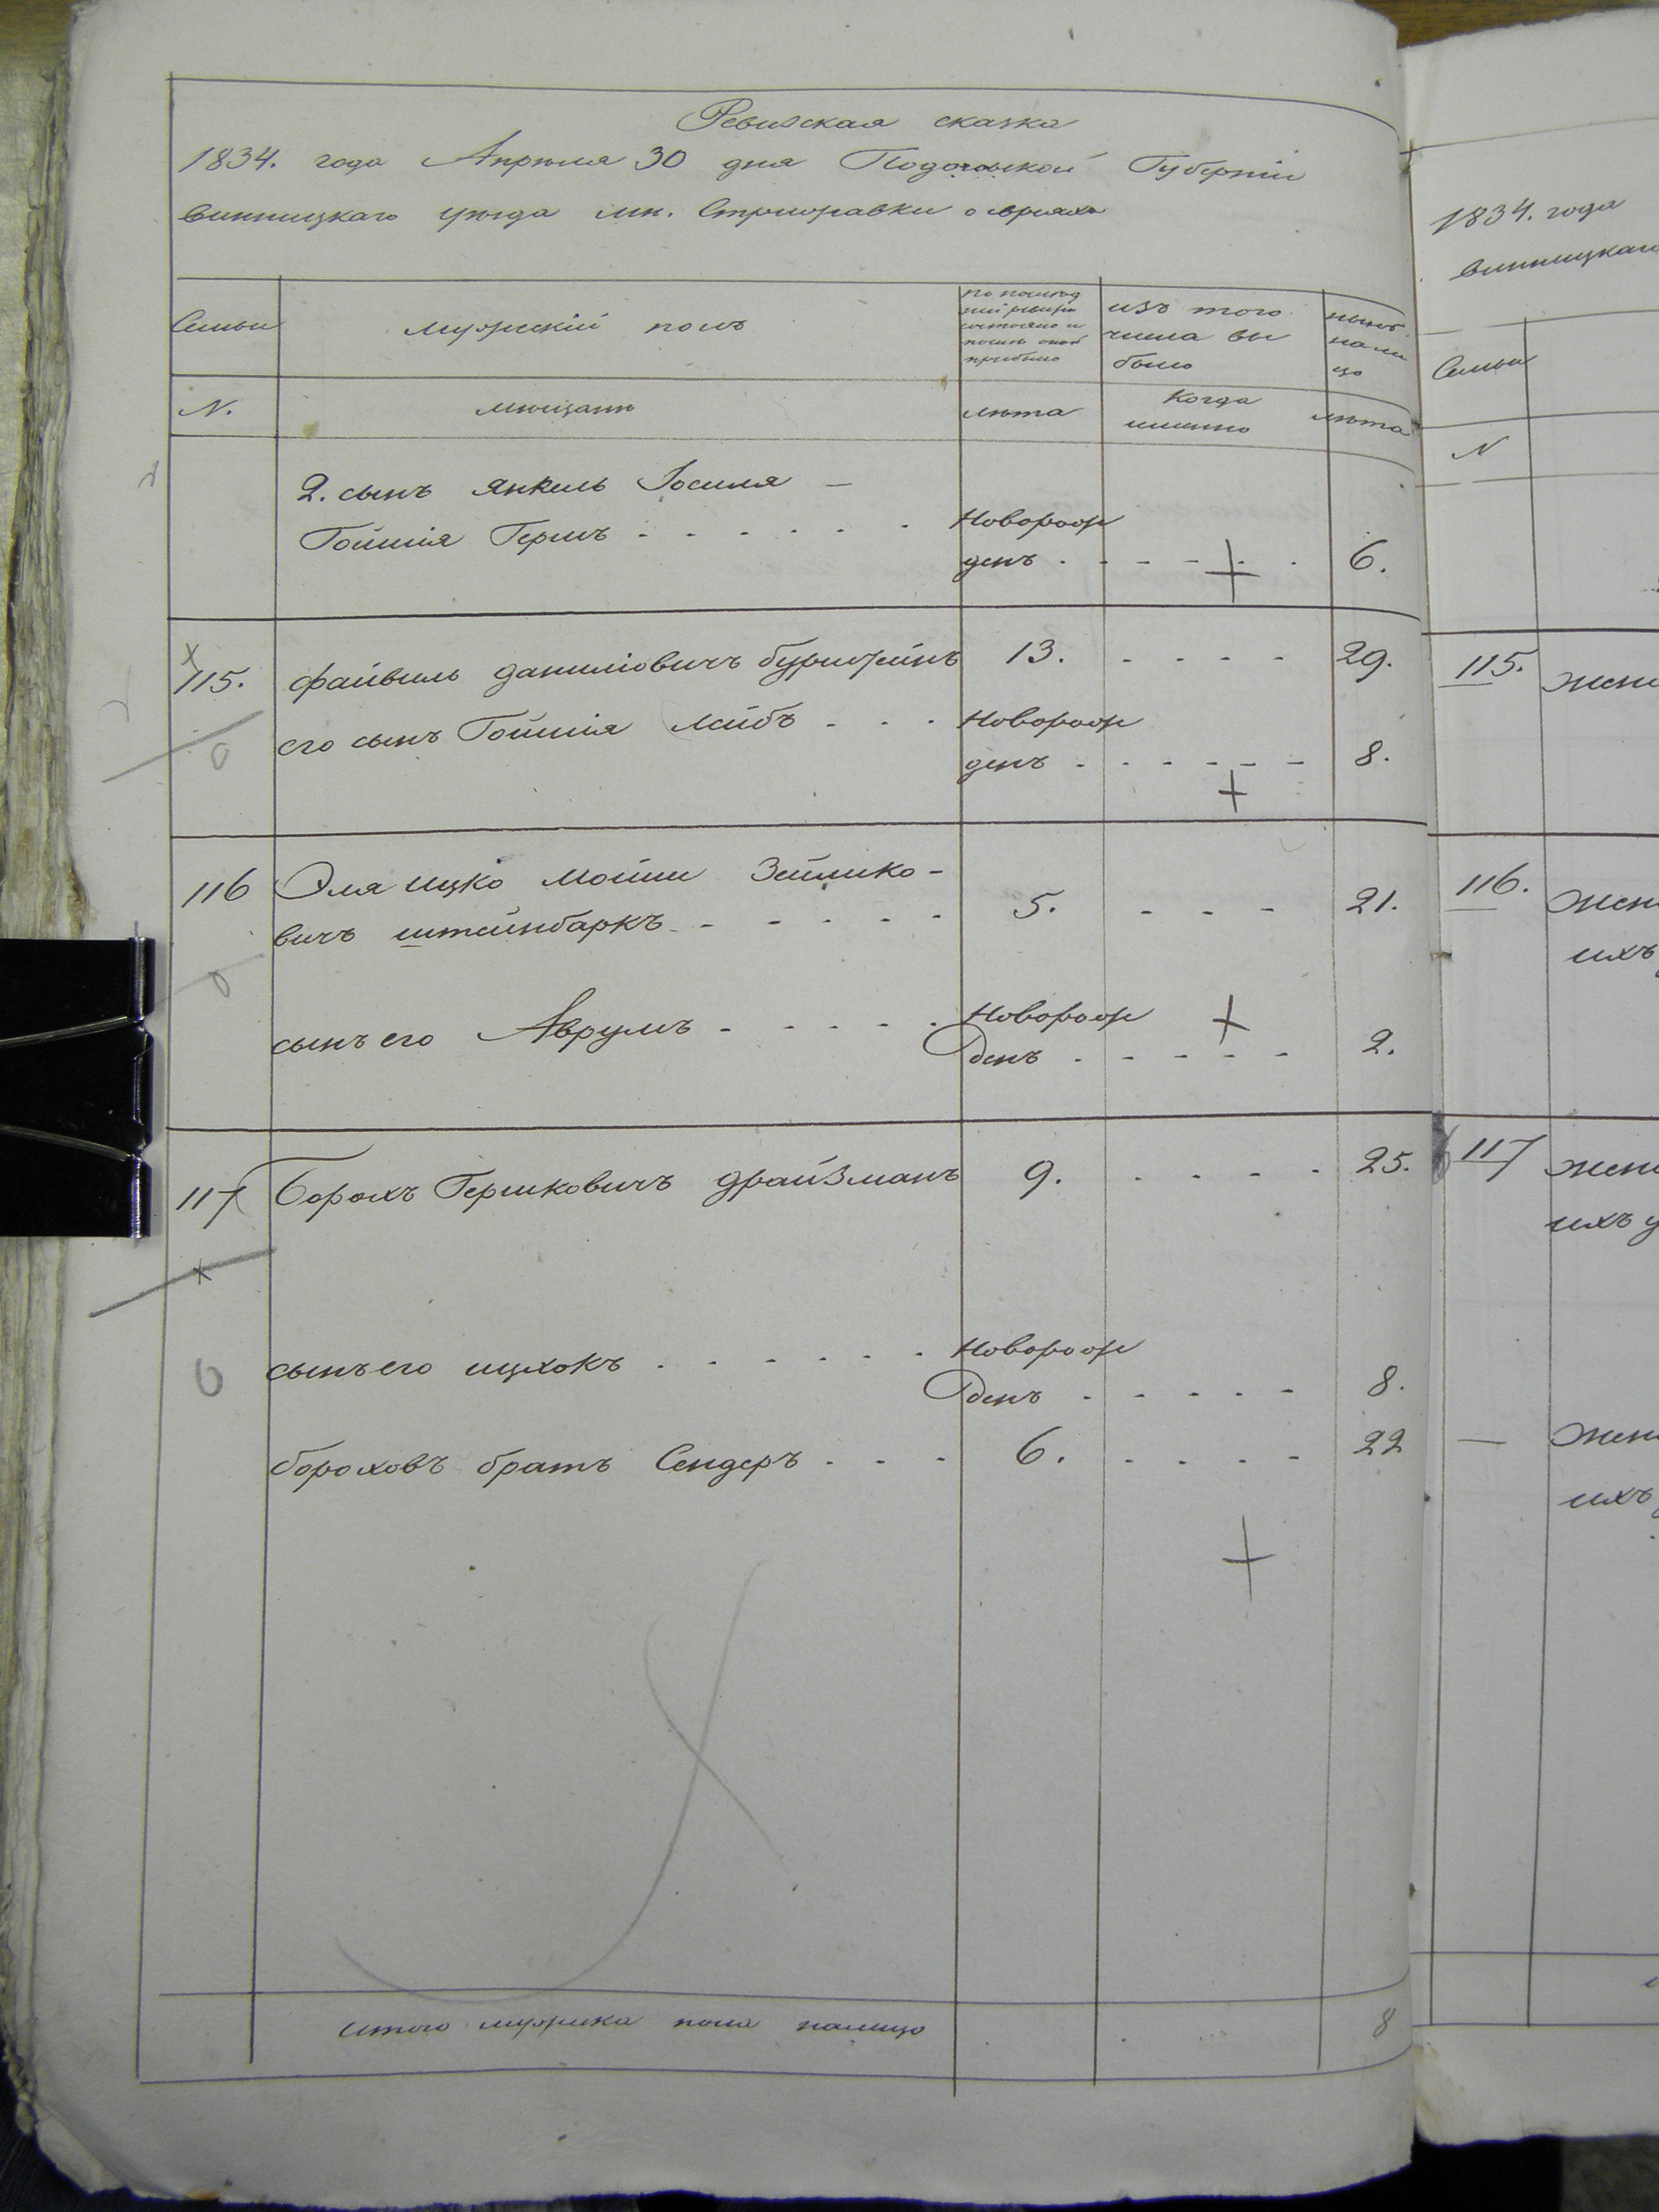 Ревизская сказка
1834. года Апрѣля 30 дня Подольской Губерніи
винницкаго уѣзда мѣ. Стрижавки о евреяхъ
Семьи
мужескій полъ
по послѣд
ней ревизіи
состояло и
послѣ оной
прибыло
изъ того
числа вы
было
нынѣ
на ли
цо
N.
мѣщане
лѣта
Когда
именно
лѣта
2. сынъ Янкель Іосиля —
Гошшія Гершъ - - - - - - Новорож
денъ - - - - - - 6.
115. файвиль даниліовичъ бурштейнъ 13. - - - - 29.
его сынъ Гошшія Лейбъ - - - Новорож
денъ - - - - - - 8.
116 Эля ицко Мошши Зейлико-
вичъ штейнбаркъ - - - - - 5. - - - 21.
сынъ его Аврумъ - - - - - Новорож
Денъ - - - - - 2.
117 Борохъ Гершковичъ драйзманъ 9. - - - - 25.
сынъ его ицхокъ - - - - - - Новорож
Денъ - - - - - 8.
бороховъ братъ Сендеръ - - - 6. - - - - 22
итого мужеска пола налицо 8
1834. года
винницкаго
Семьи
N
115. жен
116. жен
ихъ
117 жен
ихъ у
— жен
ихъ